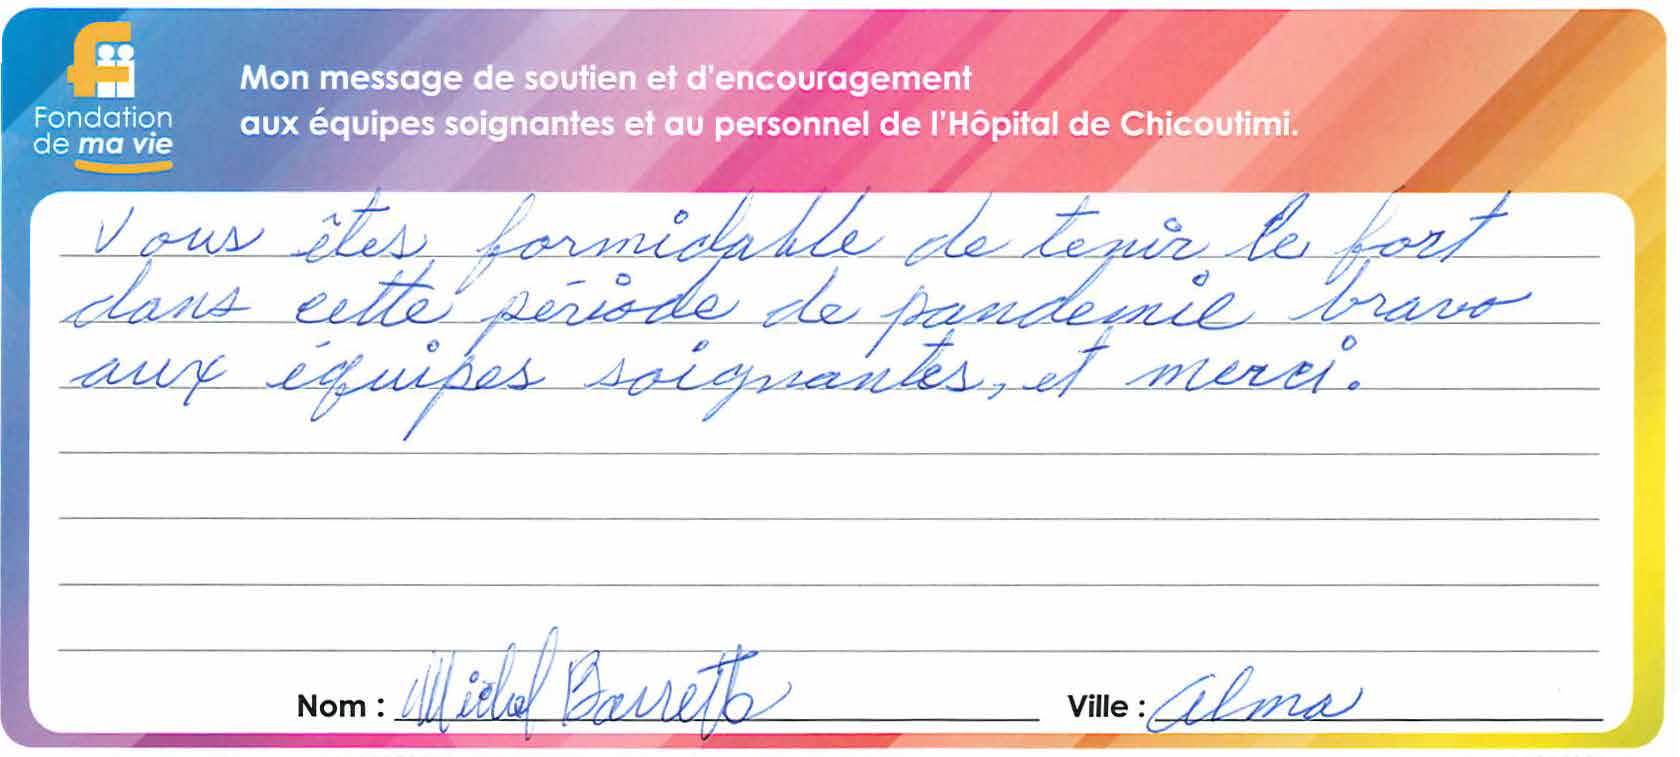 Fondation
de ma vie
Mon message de soutien et d'encouragement
aux équipes soignantes et au personnel de l'Hôpital de Chicoutimi.
Vous êtes formidable de tenir le fort
dans cette période de pandemie bravo
aux équipes soignantes, et merci.
Nom : Michel Barrette
Ville : Alma